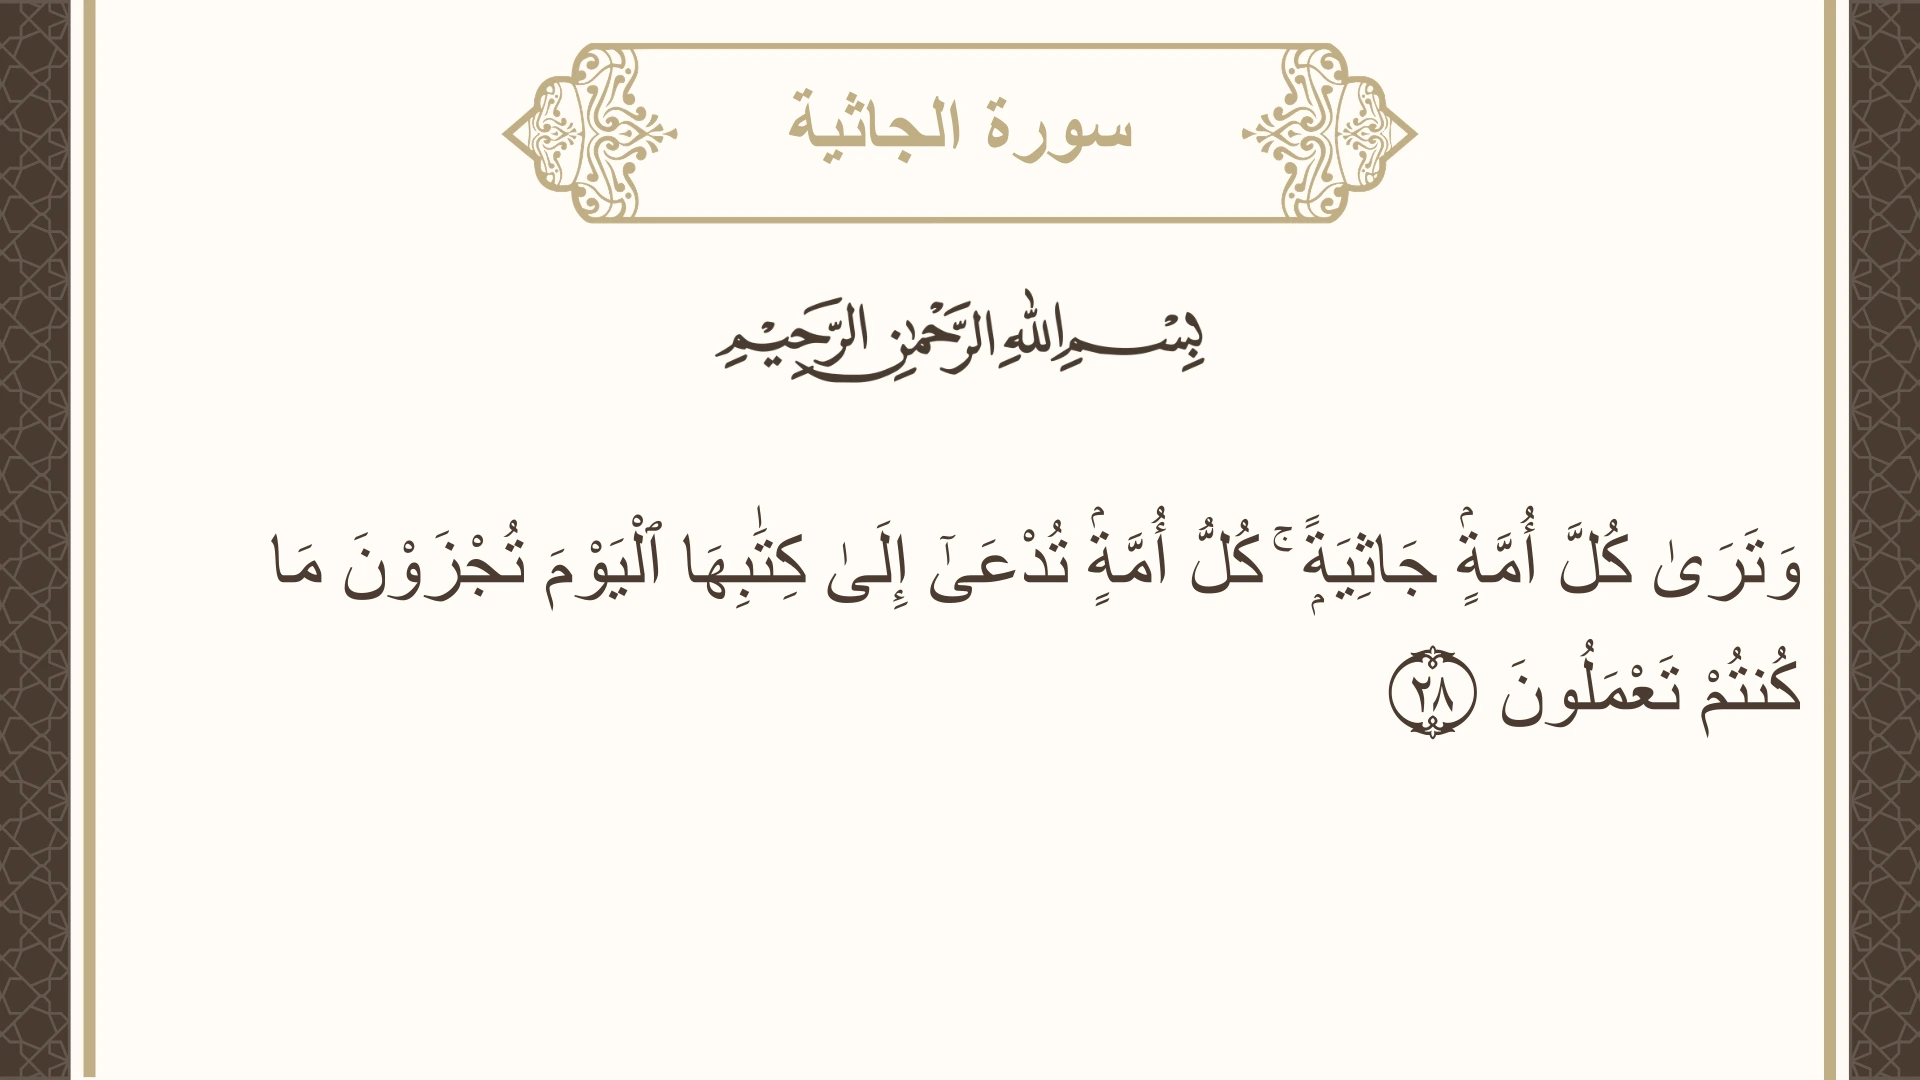 سورة الجاثية
بِسْمِ اللَّهِ الرَّحْمَٰنِ الرَّحِيمِ
وَتَرَىٰ كُلَّ أُمَّةٍۢ جَاثِيَةًۭ ۚ كُلُّ أُمَّةٍۢ تُدْعَىٰٓ إِلَىٰ كِتَٰبِهَا ٱلْيَوْمَ تُجْزَوْنَ مَا
كُنتُمْ تَعْمَلُونَ ٢٨